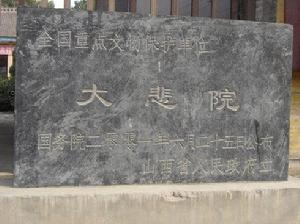 全国重点文物保护单位
大悲院
国务院二零零一年六月二十五日公布
山西省人民政府立